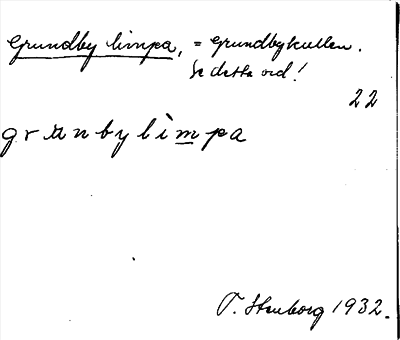 Grundby limpa, = Grundbykullen.
Se detta ord!
22
grünbylìmpa
T. Stenborg 1932.